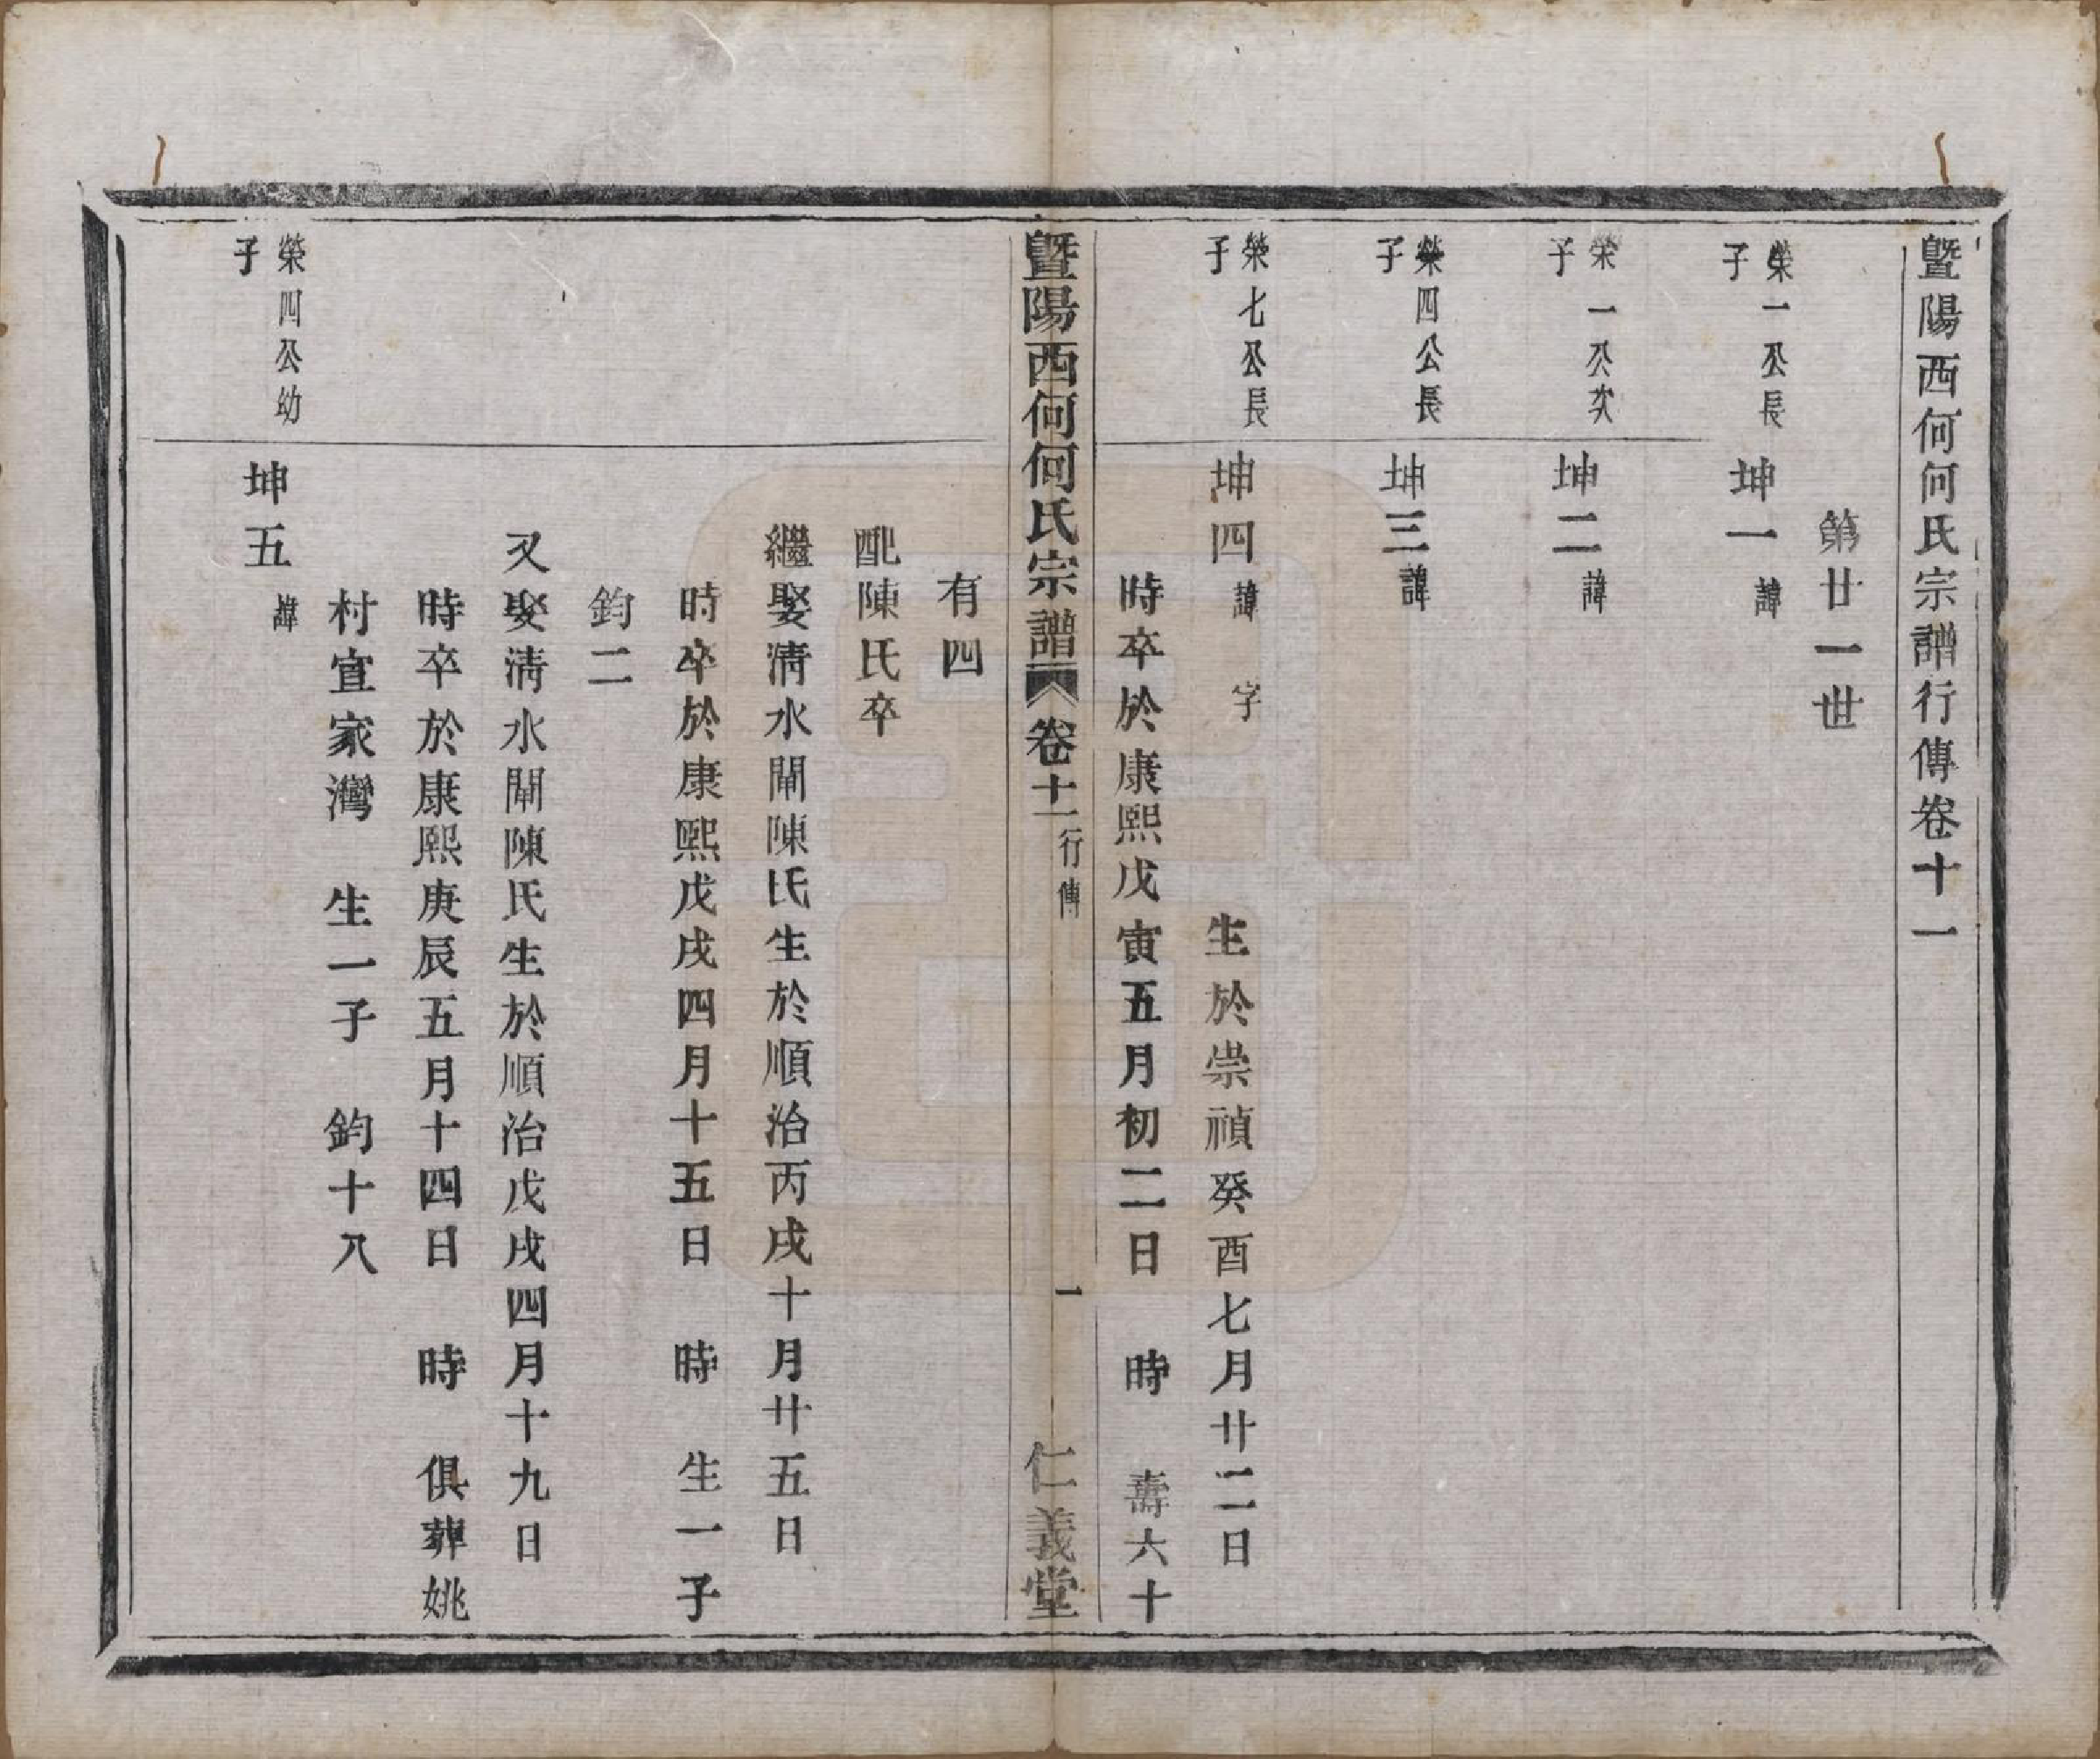 暨陽西何何氏宗譜行傳卷十一
第廿一世
榮一公長子
坤一諱
榮一公次子
坤二諱
榮四公長子
坤三諱
榮七公長子
坤四諱 字 生於崇禎癸酉七月廿二日
時卒於康熙戊寅五月初二日 時 壽六十
暨陽西何何氏宗譜 卷十一 行傳 一 仁義堂
有四
配陳氏卒
繼娶淸水閘陳氏生於順治丙戌十月廿五日
時卒於康熙戊戌四月十五日 時 生一子
鈞二
又娶淸水閘陳氏生於順治戊戌四月十九日
時卒於康熙庚辰五月十四日 時 俱葬姚
村宣家灣 生一子 鈞十八
榮四公幼子
坤五諱